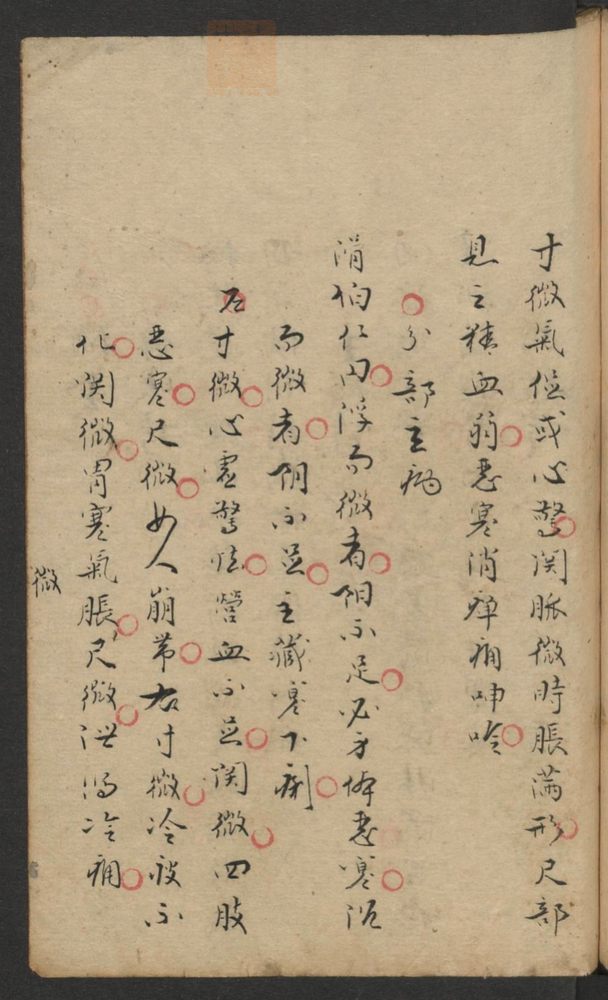 寸微氣促或心驚関脈微時脹滿形尺部
見之精血弱惡寒消癉痛呻吟
分部主病
滑伯仁曰浮而微者陽不足必身体惡寒沉
而微者陰不足主藏寒下痢
左寸微心虛驚怯營血不足関微四肢
惡寒尺微女人崩帶右寸微冷痰不
化関微胃寒氣脹尺微泄瀉冷痛
微